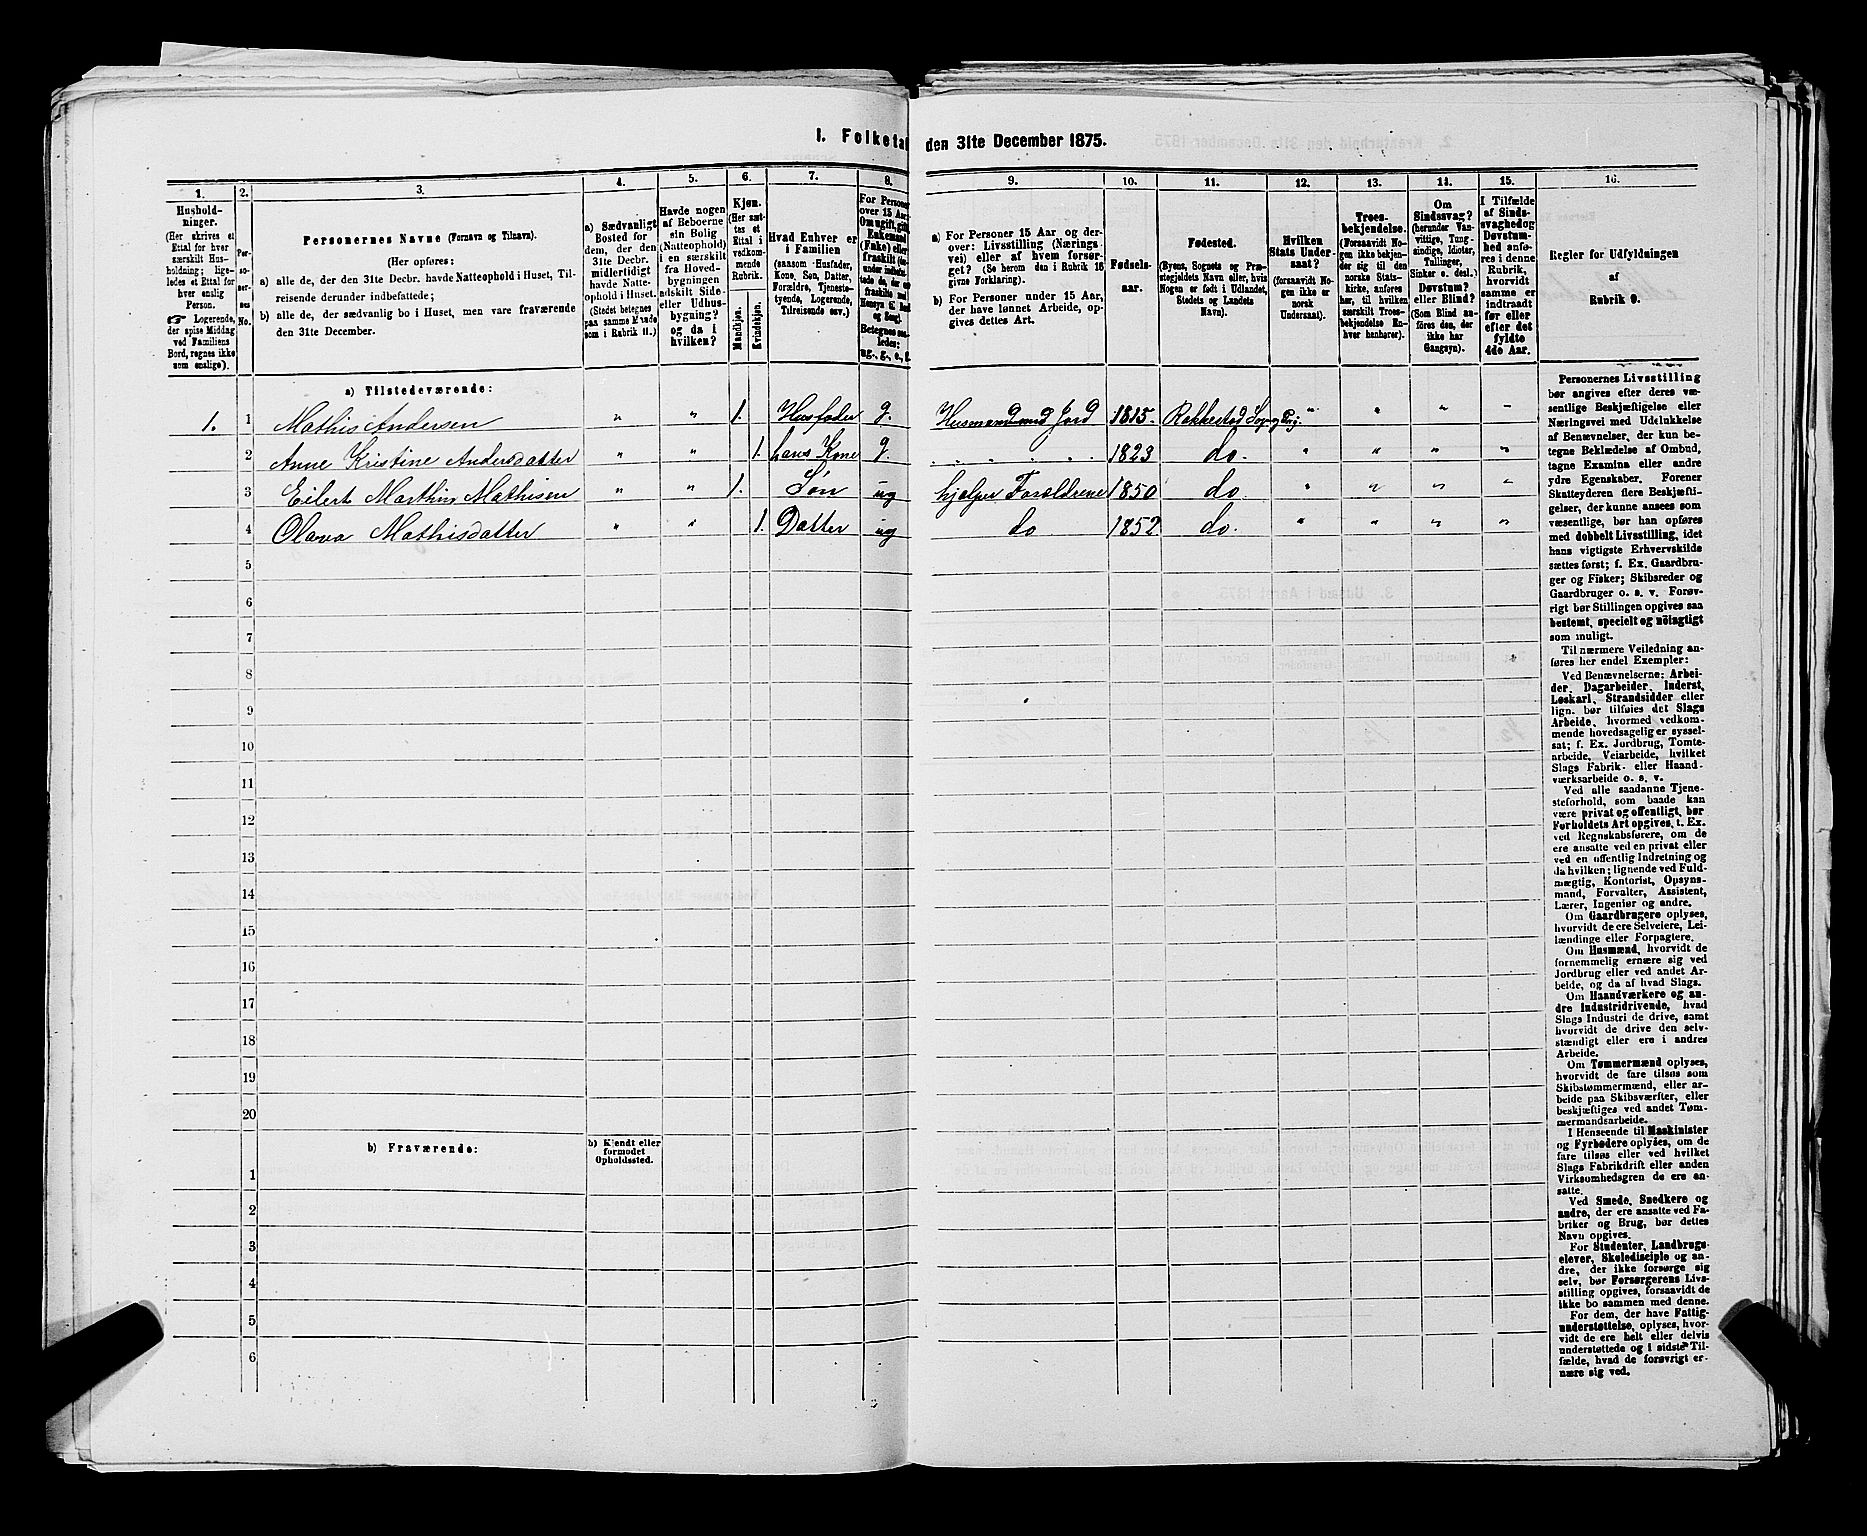 1. Folketal den 31te December 1875.
1.
2.
3.
4.
5.
6.
7.
8.
9.
10.
11.
12.
13.
14.
15.
16.
Hushold-
ninger.
(Her skrives et
Ettal for hver
særskilt Hus-
holdning; lige-
ledes et Ettal for
hver enslig
Person.
☞ Logerende,
der spise Middag
ved Familiens
Bord, regnes ikke
som enslige).
Per-
so-
ner-
nes
No.
Personernes Navne (Fornavn og Tilnavn).
(Her opføres:
a) alle de, der den 31te Decbr. havde Natteophold i Huset, Til-
reisende derunder indbefattede;
b) alle de, der sædvanlig bo i Huset, men vare fraværende
den 31te December.
a) Sædvanligt
Bosted for
dem, der den
31te Decbr.
midlertidigt
havde Natte-
ophold i Huset.
(Stedet betegnes
paa samme Maade
som i Rubrik 11.)
Havde nogen
af Beboerne
sin Bolig
(Natteophold)
i en særskilt
fra Hoved-
bygningen
adskilt Side-
eller Udhus-
bygning?
og da i
hvilken?
Kjøn.
(Her sæt-
tes et
Ettal i
vedkom-
mende
Rubrik.
Mandkjøn.
Kvindekjøn.
Hvad Enhver er
i Familien
(saasom Husfader,
Kone, Søn, Datter,
Forældre, Tjeneste-
tyende, Logerende,
Tilreisende osv.)
For Personer
over 15 Aar:
Om ugift, gift,
Enkemand
(Enke) eller
fraskilt
Betegnes saa-
ledes:
ug., g., e., f.
a) For Personer 15 Aar og der-
over: Livsstilling (Nærings-
vei) eller af hvem forsør-
get? (Se herom den i Rubrik 16
givne Forklaring).
b) For Personer under 15 Aar,
der have lønnet Arbeide, op-
gives dettes Art.
Fødsels-
aar.
Fødested.
(Byens, Sognets og Præ-
stegjeldets Navn eller, hvis
Nogen er født i Udlandet,
Stedets og Landets
Navn).
Hvilken
Stats Under-
saat?
(forsaavidt No-
gen ikke er
norsk
Undersaat).
Troes-
bekjendelse.
(Forsaavidt No-
gen ikke bekjen-
der sig til den
norske Stats-
kirke, anføres
her, til hvilken
særskilt Troes-
bekjendelse En-
hver hanhører).
Om
Sindssvag?
(herunder Van-
vittige, Tung-
sindige, Idioter,
Tullinger,
Sinker o. desl.)
Døvstum?
eller Blind?
(Som Blind an-
føres den, der
ikke har
Gangsyn).
I Tilfælde
af Sinds-
svaghed og
Døvstum-
hed anfø-
res i denne
Rubrik,
hvorvidt
samme er
indtraadt
før eller
efter det
fyldte
4de Aar.
Regler for Udfyldningen
af
Rubrik 9.
a) Tilstedeværende:
1. 1 Mathis Andersen " " 1. Husfader g. Husmand med Jord 1815. Rakkestad Sogn og Prg. " " " "
2 Anne Kristine Andersdatter " " 1. hans Kone g. . . . . . 1823 do. " " " "
3 Eilert Marthin Mathisen " " 1. Søn ug hjælper Forældrene 1850 do " " " "
4 Olava Mathisdatter " " 1. Datter ug do 1852 do. " " " "
5
6
7
8
9
10
11
12
13
14
15
16
17
18
19
20
b) Fraværende:
b) Kjendt eller
formodet
Opholdssted.
1
2
3
4
5
6
Personernes Livsstilling
bør angives efter deres væ-
sentlige Beskjæftigelse eller
Næringsvei med Udelukkelse
af Benævnelser, der kun be-
tegne Beklædelse af Ombud,
tagne Examina eller andre
ydre Egenskaber. Forener
Skatteyderen flere Beskjæfti-
gelser, der kunne ansees som
væsentlige, bør han opføres
med dobbelt Livsstilling, idet
hans vigtigste Erhvervskilde
sættes først; f. Ex. Gaardbru-
ger og Fisker; Skibsreder og
Gaardbruger o. s. v. Forøv-
rigt bør Stillingen opgives saa
bestemt, specielt og nöiagtigt
som muligt.
Til nærmere Veiledning an-
føres her endel Exempler:
Ved Benævnelserne: Arbei-
der, Dagarbeider, Inderst,
Løskarl, Strandsidder eller
lign. bør tilføies det Slags
Arbeide, hvormed vedkom-
mende hovedsagelig er syssel-
sat; f. Ex. Jordbrug, Tomte-
arbeide, Veiarbeide, hvilket
Slags Fabrik- eller Haand-
værksarbeide o. s. v.
Ved alle saadanne Tjene-
steforhold, som baade kan
være privat og offentligt, bør
Forholdets Art opgives, t. Ex.
ved Regnskabsførere, om de
ere ansatte ved en privat eller
ved en offentlig Indretning og
da hvilken; lignende ved Fuld-
mægtig, Kontorist, Opsyns-
mand, Forvalter, Assistent,
Lærer, Ingeniør og andre.
Om Gaardbrugere oplyses,
hvorvidt de ere Selveiere, Lei-
lændinge eller Forpagtere.
Om Husmænd, hvorvidt de
fornemmelig ernære sig ved
Jordbrug eller ved andet Ar-
beide, og da af hvad Slags.
Om Haandværkere og an-
dre Industridrivende, hvad
Slags Industri de drive, samt
hvorvidt de drive den selv-
stændigt eller ere i andres
Arbeide.
Om Tømmermænd oplyses,
hvorvidt de fare tilsøs som
Skibstømmermænd, eller ar-
beide paa Skibsværfter, eller
beskjæftiges ved andet Tøm-
mermandsarbeide.
I Henseende til Maskinister
og Fyrbødere oplyses, om de
fare tilsøs eller ved hvilket
Slags Fabrikdrift eller anden
Virksomhedsgren de ere an-
satte.
Ved Smede, Snedkere og
andre, der ere ansatte ved Fa-
briker og Brug, bør dettes
Navn opgives.
For Studenter, Landbrugs-
elever, Skoledisciple og an-
dre, der ikke forsørge sig
selv, bør Forsørgerens Livs-
stilling opgives, forsaavidt de
ikke bo sammen med denne.
For dem, der have Fattig-
understøttelse, oplyses, hvor-
vidt de ere helt eller delvis
understøttede og i sidste Til-
fælde, hvad de forøvrigt er-
nære sig ved.